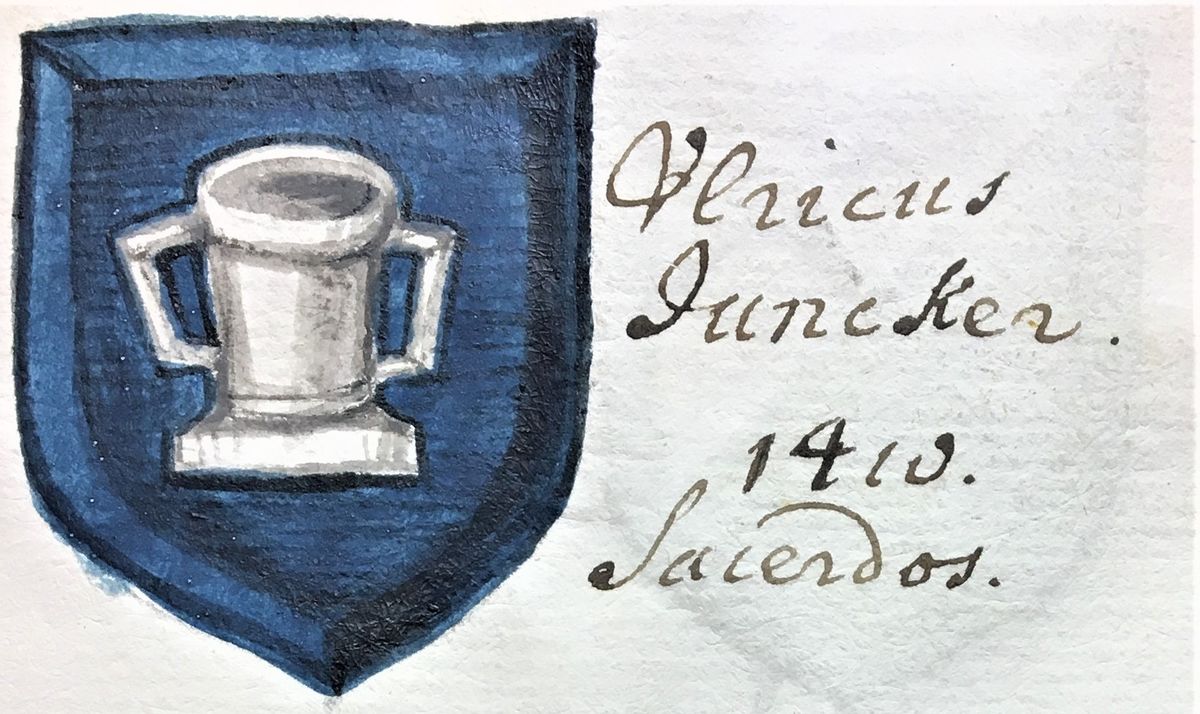 Vlricus
Juncker.
1410.
Sacerdos.